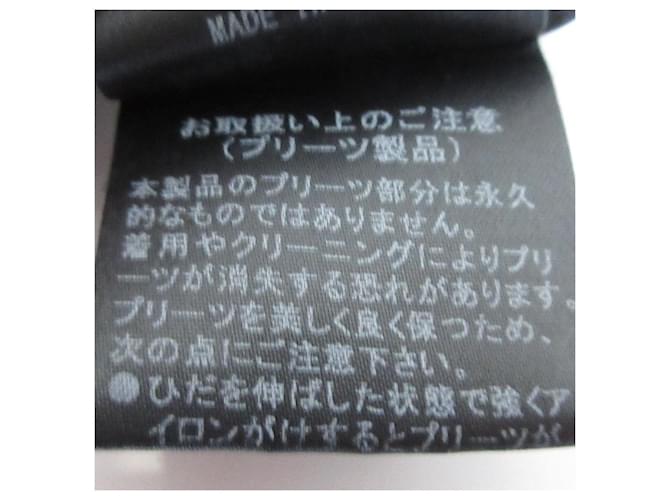 MADE
お取扱い上のご注意
(プリーツ製品)
本製品のプリーツ部分は永久
的なものではありません。
着用やクリーニングによりプリ
ーツが消失する恐れがあります。
プリーツを美しく良く保つため、
次の点にご注意下さい。
●ひだを伸ばした状態で強くア
イロンがけするとプリーツが